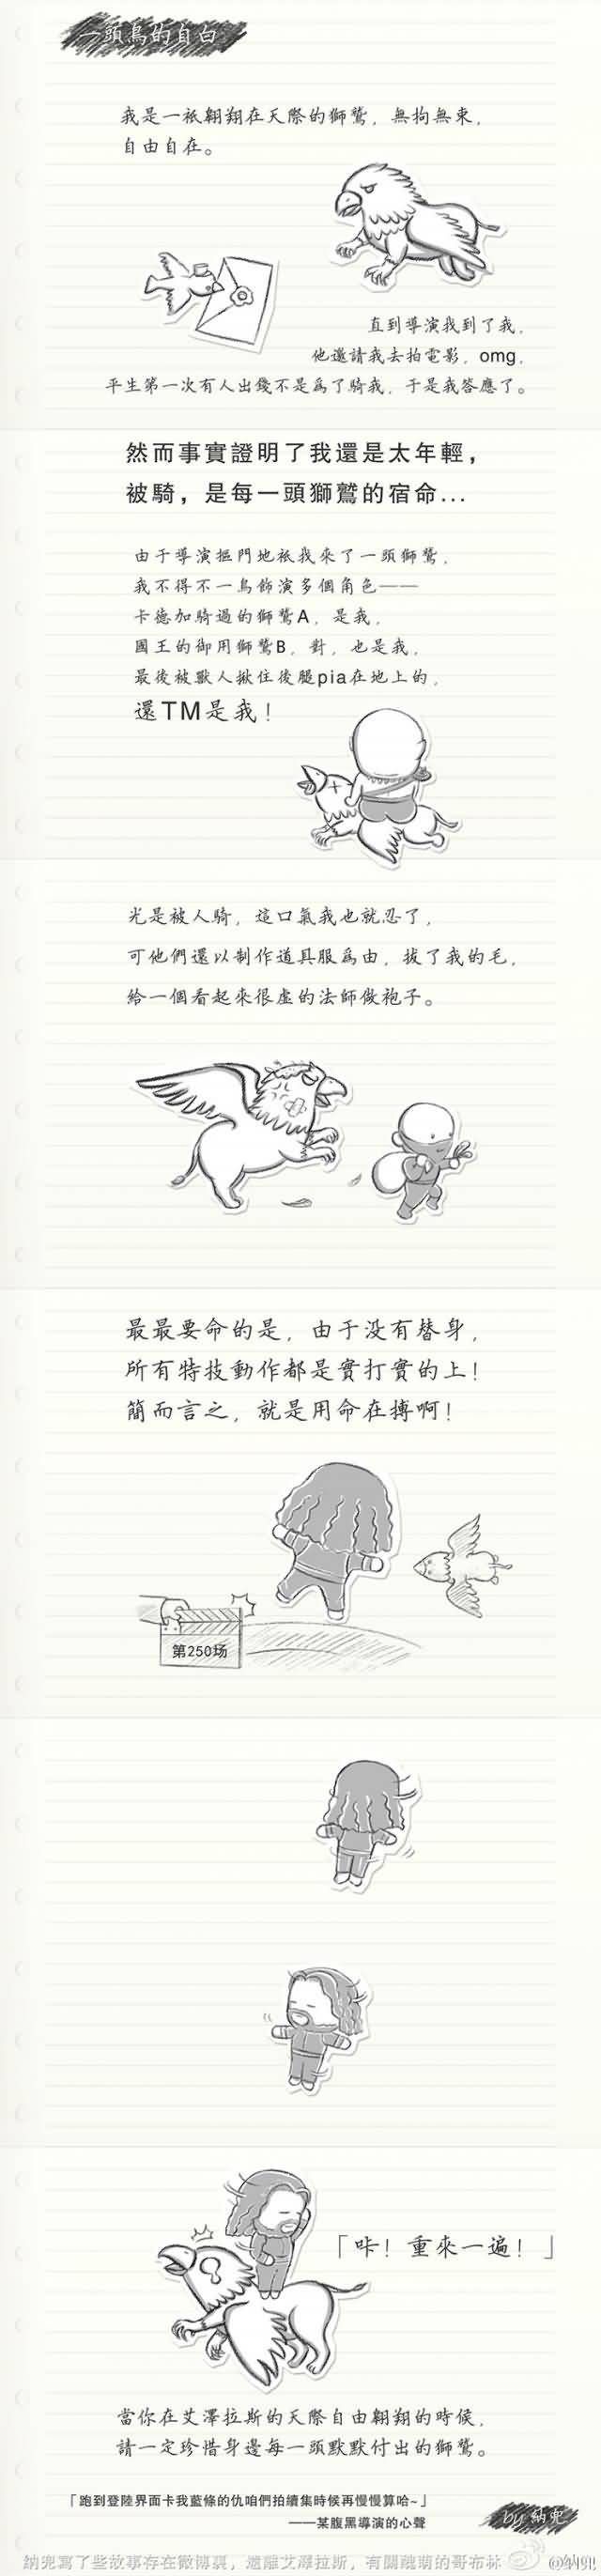 一頭鳥的自白
我是一衹翱翔在天際的獅鷲，無拘無束，
自由自在。
直到導演找到了我，
他邀請我去拍電影，omg，
平生第一次有人出錢不是爲了騎我，于是我答應了。
然而事實證明了我還是太年輕，
被騎，是每一頭獅鷲的宿命...
由于導演摳門地衹找來了一頭獅鷲，
我不得不一鳥飾演多個角色——
卡德加騎過的獅鷲A，是我，
國王的御用獅鷲B，對，也是我，
最後被獸人揪住後腿pia在地上的，
還TM是我！
光是被人騎，這口氣我也就忍了，
可他們還以制作道具服爲由，拔了我的毛，
給一個看起來很虛的法師做袍子。
最最要命的是，由于没有替身，
所有特技動作都是實打實的上！
簡而言之，就是用命在搏啊！
第250场
「咔！重來一遍！」
當你在艾澤拉斯的天際自由翱翔的時候，
請一定珍惜身邊每一頭默默付出的獅鷲。
「跑到登陸界面卡我藍條的仇咱們拍續集時候再慢慢算哈~」
——某腹黑導演的心聲
by 納兜
納兜寫了些故事存在微博裏，遠離艾澤拉斯，有關醜萌的哥布林
@納兜